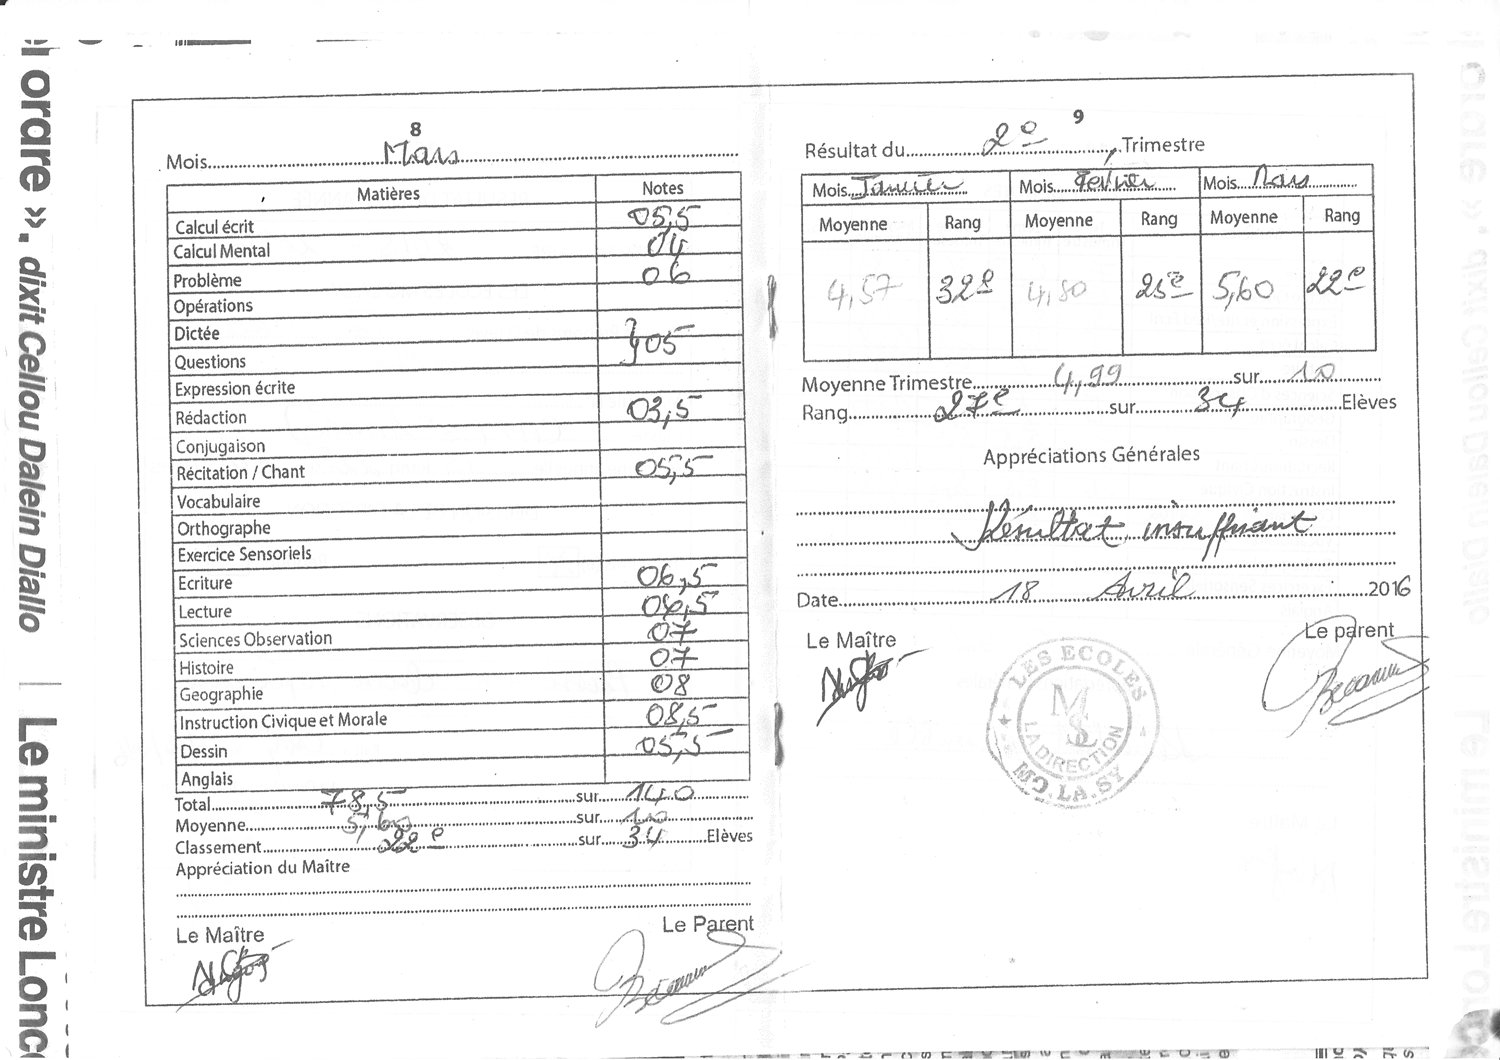 el ordre ». dixit Cellou Dalein Diallo | Le ministre Lonc
8
Mois Mars
Matières Notes
Calcul écrit 05,5
Calcul Mental 04
Problème 06
Opérations
Dictée
Questions } 05
Expression écrite
Rédaction 03,5
Conjugaison
Récitation / Chant 05,5
Vocabulaire
Orthographe
Exercice Sensoriels
Ecriture 06,5
Lecture 06,5
Sciences Observation 07
Histoire 07
Geographie 08
Instruction Civique et Morale 08,5
Dessin 05,5
Anglais
Total 78,5 sur 140
Moyenne 5,60 sur 10
Classement 22e sur 34 Elèves
Appréciation du Maître
Le Maître Le Parent
9
Résultat du 2e Trimestre
Mois Janvier Mois Fevrier Mois Mars
Moyenne Rang Moyenne Rang Moyenne Rang
4,57 32e 4,80 25e 5,60 22e
Moyenne Trimestre 4,99 sur 10
Rang 27e sur 34 Elèves
Appréciations Générales
Résultat insuffisant
Date 18 Avril 2016
Le Maître Le parent
LES ECOLES
MSL
LA DIRECTION
MO.LA.SY